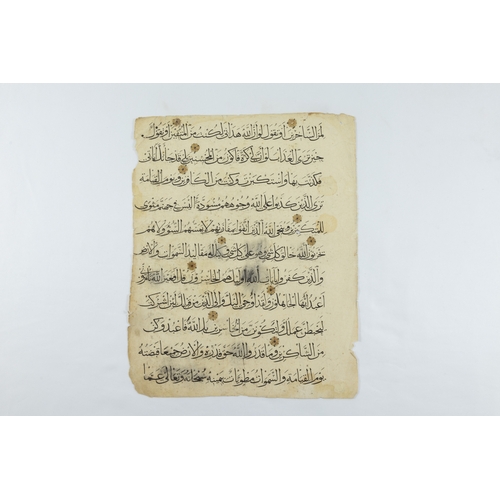 لمن الساخرين أو تقول لو أن الله هداني لكنت من المتقين أو تقول
حين ترى العذاب لو أن لي كرة فأكون من المحسنين بلى قد جاءتك آياتي
فكذبت بها واستكبرت وكنت من الكافرين ويوم القيامة
ترى الذين كذبوا على الله وجوههم مسودة أليس في جهنم مثوى
للمتكبرين وينجي الله الذين اتقوا بمفازتهم لا يمسهم السوء ولا هم
يحزنون الله خالق كل شيء وهو على كل شيء وكيل له مقاليد السموات والأرض
والذين كفروا بآيات الله أولئك هم الخاسرون قل أفغير الله تأمروني
أعبد أيها الجاهلون ولقد أوحي إليك وإلى الذين من قبلك لئن أشركت
ليحبطن عملك ولتكونن من الخاسرين بل الله فاعبد وكن
من الشاكرين وما قدروا الله حق قدره والأرض جميعا قبضته
يوم القيامة والسموات مطويات بيمينه سبحانه وتعالى عما